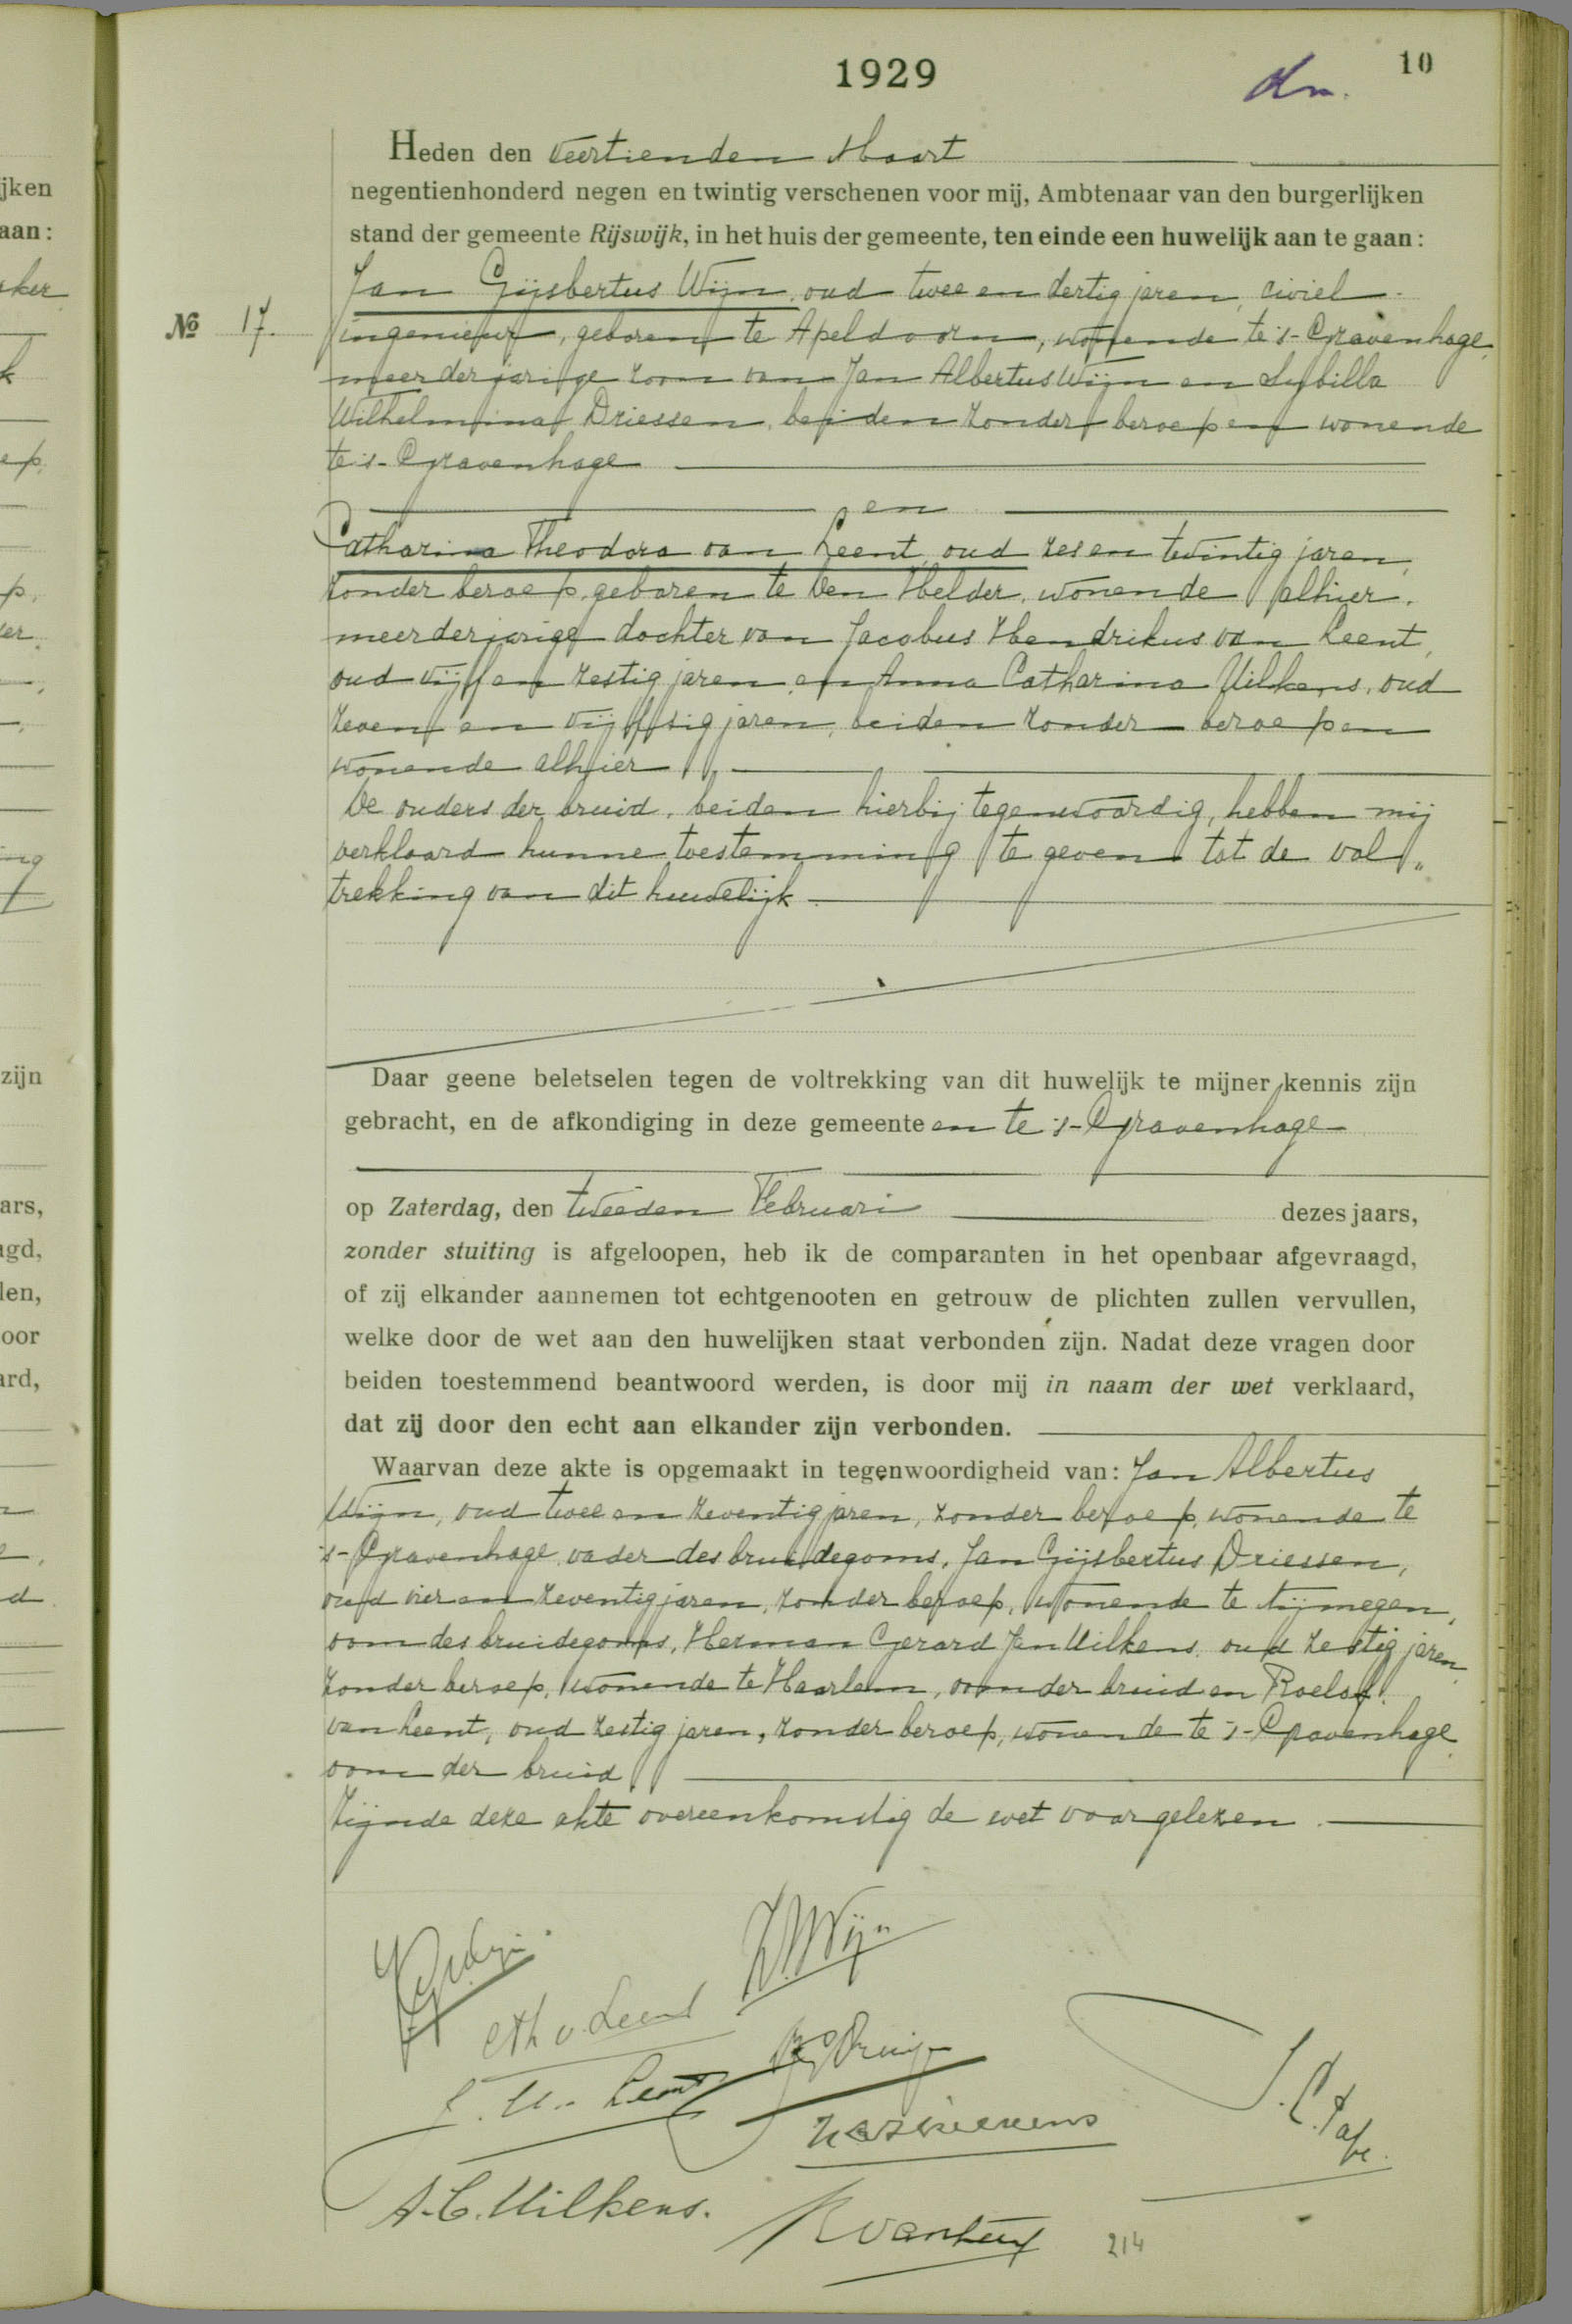 1929
10
Heden den veertienden Maart
negentienhonderd negen en twintig verschenen voor mij, Ambtenaar van den burgerlijken
stand der gemeente Rijswijk, in het huis der gemeente, ten einde een huwelijk aan te gaan:
Jan Gijsbertus Wijn, oud twee en dertig jaren, civiel
№ 17.
ingenieur, geboren te Apeldoorn, wonende te 's-Gravenhage,
meerderjarige zoon van Jan Albertus Wijn en Sybilla
Wilhelmina Driessen, beiden zonder beroep en wonende
te 's-Gravenhage
en
Catharina Theodora van Leent, oud zes en twintig jaren,
zonder beroep, geboren te Den Helder, wonende alhier,
meerderjarige dochter van Jacobus Hendrikus van Leent,
oud vijf en zestig jaren en Anna Catharina Uilkens, oud
zeven en vijftig jaren, beiden zonder beroep en
wonende alhier
De ouders der bruid, beiden hierbij tegenwoordig, hebben mij
verklaard hunne toestemming te geven tot de vol„
trekking van dit huwelijk
Daar geene beletselen tegen de voltrekking van dit huwelijk te mijner kennis zijn
gebracht, en de afkondiging in deze gemeente en te 's-Gravenhage
op Zaterdag, den tweeden Februari dezes jaars,
zonder stuiting is afgeloopen, heb ik de comparanten in het openbaar afgevraagd,
of zij elkander aannemen tot echtgenooten en getrouw de plichten zullen vervullen,
welke door de wet aan den huwelijken staat verbonden zijn. Nadat deze vragen door
beiden toestemmend beantwoord werden, is door mij in naam der wet verklaard,
dat zij door den echt aan elkander zijn verbonden.
Waarvan deze akte is opgemaakt in tegenwoordigheid van: Jan Albertus
Wijn, oud twee en zeventig jaren, zonder beroep, wonende te
's-Gravenhage, vader des bruidegoms, Jan Gijsbertus Driessen,
oud vier en zeventig jaren, zonder beroep, wonende te Nijmegen,
oom des bruidegoms, Herman Gerard Jan Uilkens, oud zestig jaren
zonder beroep, wonende te Haarlem, oom der bruid en Roelof
van Leent, oud zestig jaren, zonder beroep, wonende te 's-Gravenhage
oom der bruid
Zijnde deze akte overeenkomstig de wet voorgelezen.
Wijn
CTh v. Leent
A.C. Uilkens.
R van Leent
214